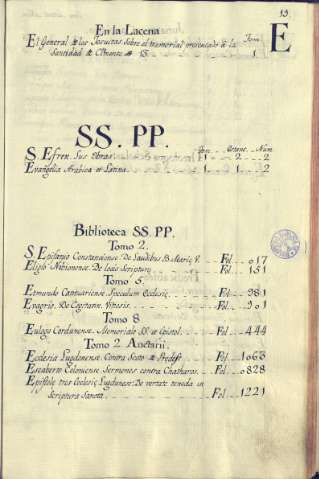 13
E
En la Lacena
El General de los Jesuitas sobre el memorial presentado a la Tom.
Santidad de Clmente 13 1
SS. PP.
Tom. Estant. Num.
S. Efren. Sus Obras 1 2 2
Evangelia Arabica et Latina 1 1 2
Biblioteca SS. PP.
Tomo 2.
S. Epifanio Constanciense De Laudibus B. Mariæ V. Fol. 017
Eligio Nobionense. De locis Scripturæ Fol. 151
Tomo 5.
Etmundo Cantuariense Speculum Ecclesiæ Fol. 981
Evagrio. De Cogitatn. Vitiosis Fol. 901
Tomo 8.
Eulogo Cordunense. Memoriale SS. et Epistol. Fol. 444
Tomo 2 Auctarii.
Ecclesia Lugdunense Contra Scoto et Predest. Fol. 1066
Escaberto Coloniense Sermones contra Chatharos Fol. 0828
Epistolæ tres Ecclesiæ Lugdunens. De veritate tenenda in
Scriptura Sancta Fol. 1221